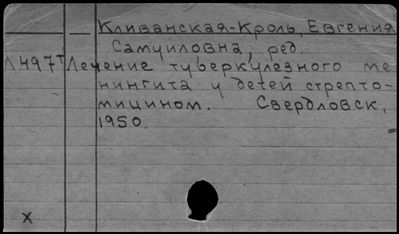 Кливанская-Кроль, Евгения
Самуиловна, ред.
Л497т Лечение туберкулезного ме
нингита у детей стрепто-
мицином. Свердловск,
1950.
x